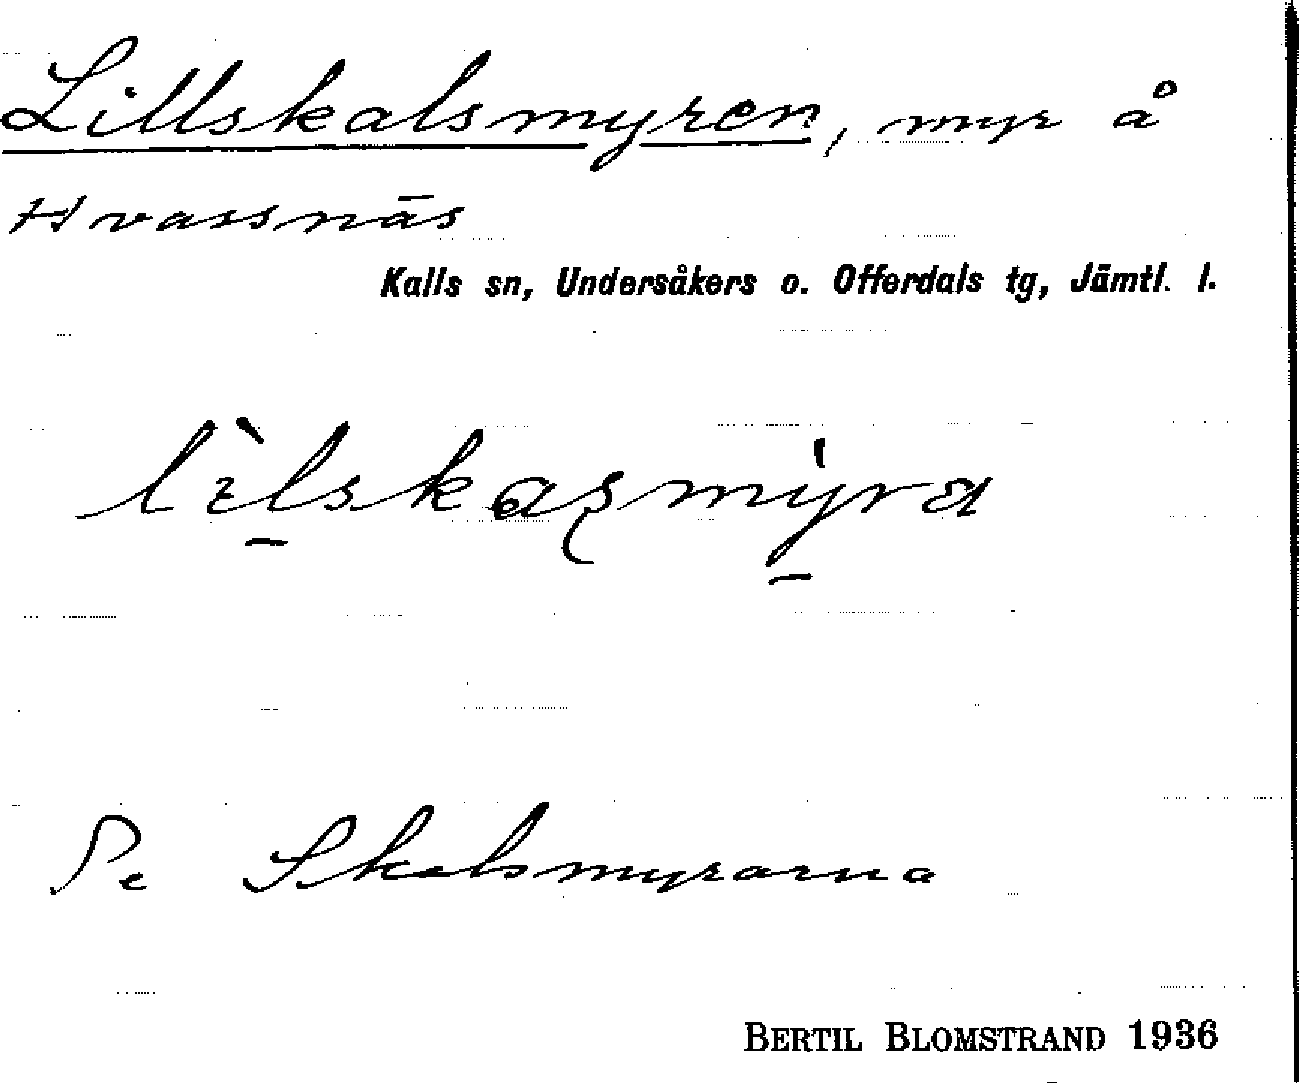 Lillskalsmyren, myr å
Hvassnäs
Kalls sn, Undersåkers o. Offerdals tg, Jämtl. l.
Se Skalsmyrarna
BERTIL BLOMSTRAND 1936